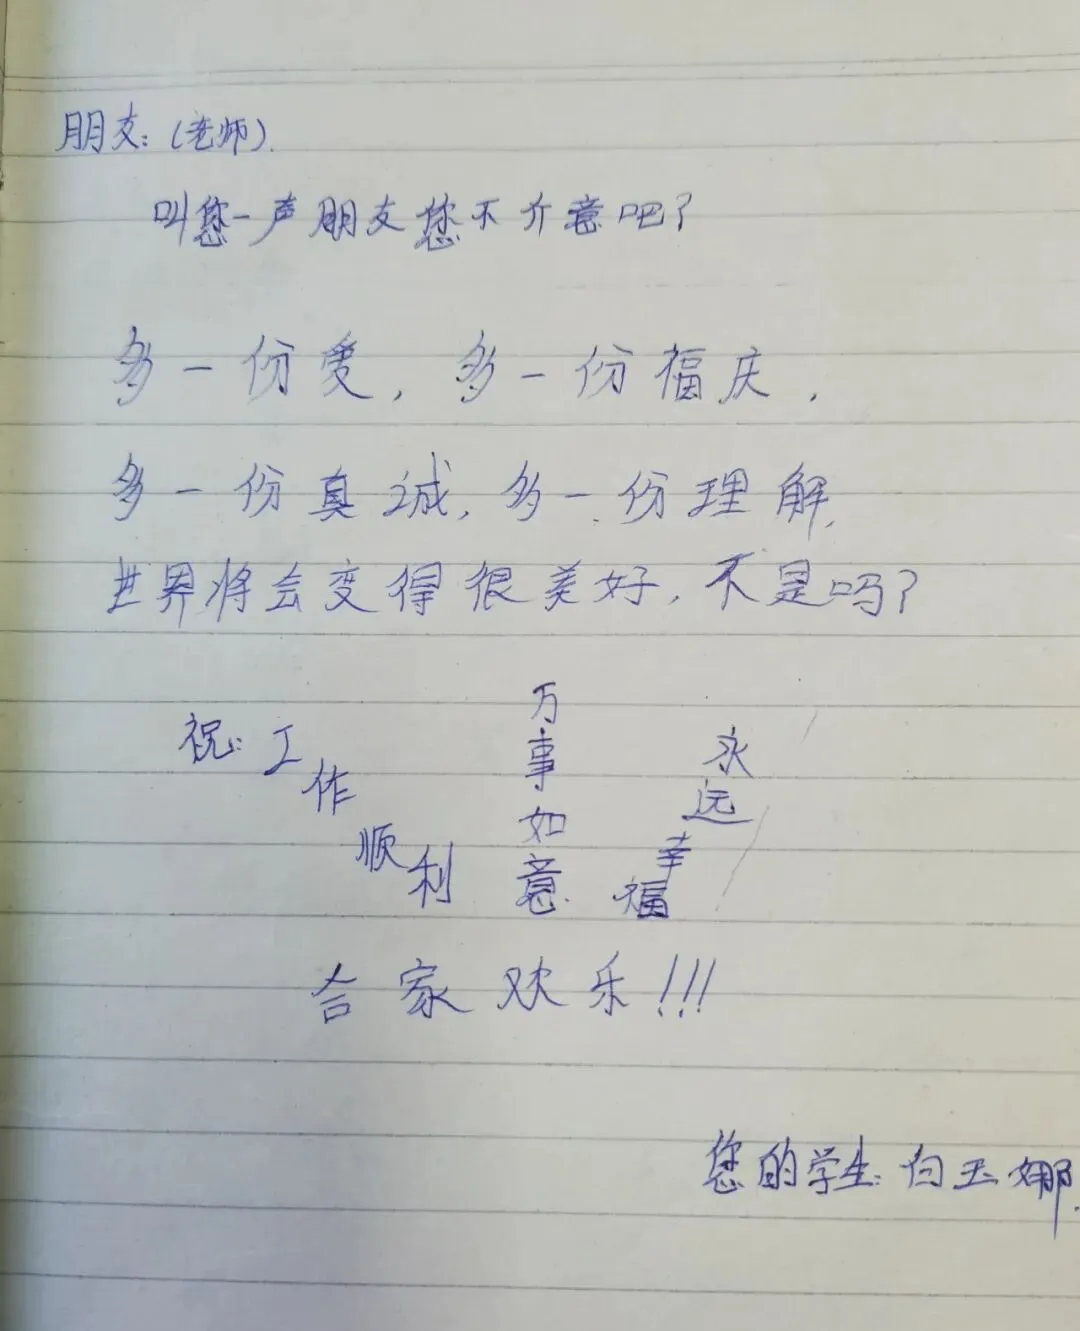 朋友：（老师）.
叫您一声朋友您不介意吧？
多一份爱，多一份福庆，
多一份真诚，多一份理解，
世界将会变得很美好，不是吗？
祝：工作顺利
万事如意
永远幸福
合家欢乐！！！
您的学生：白玉娜.